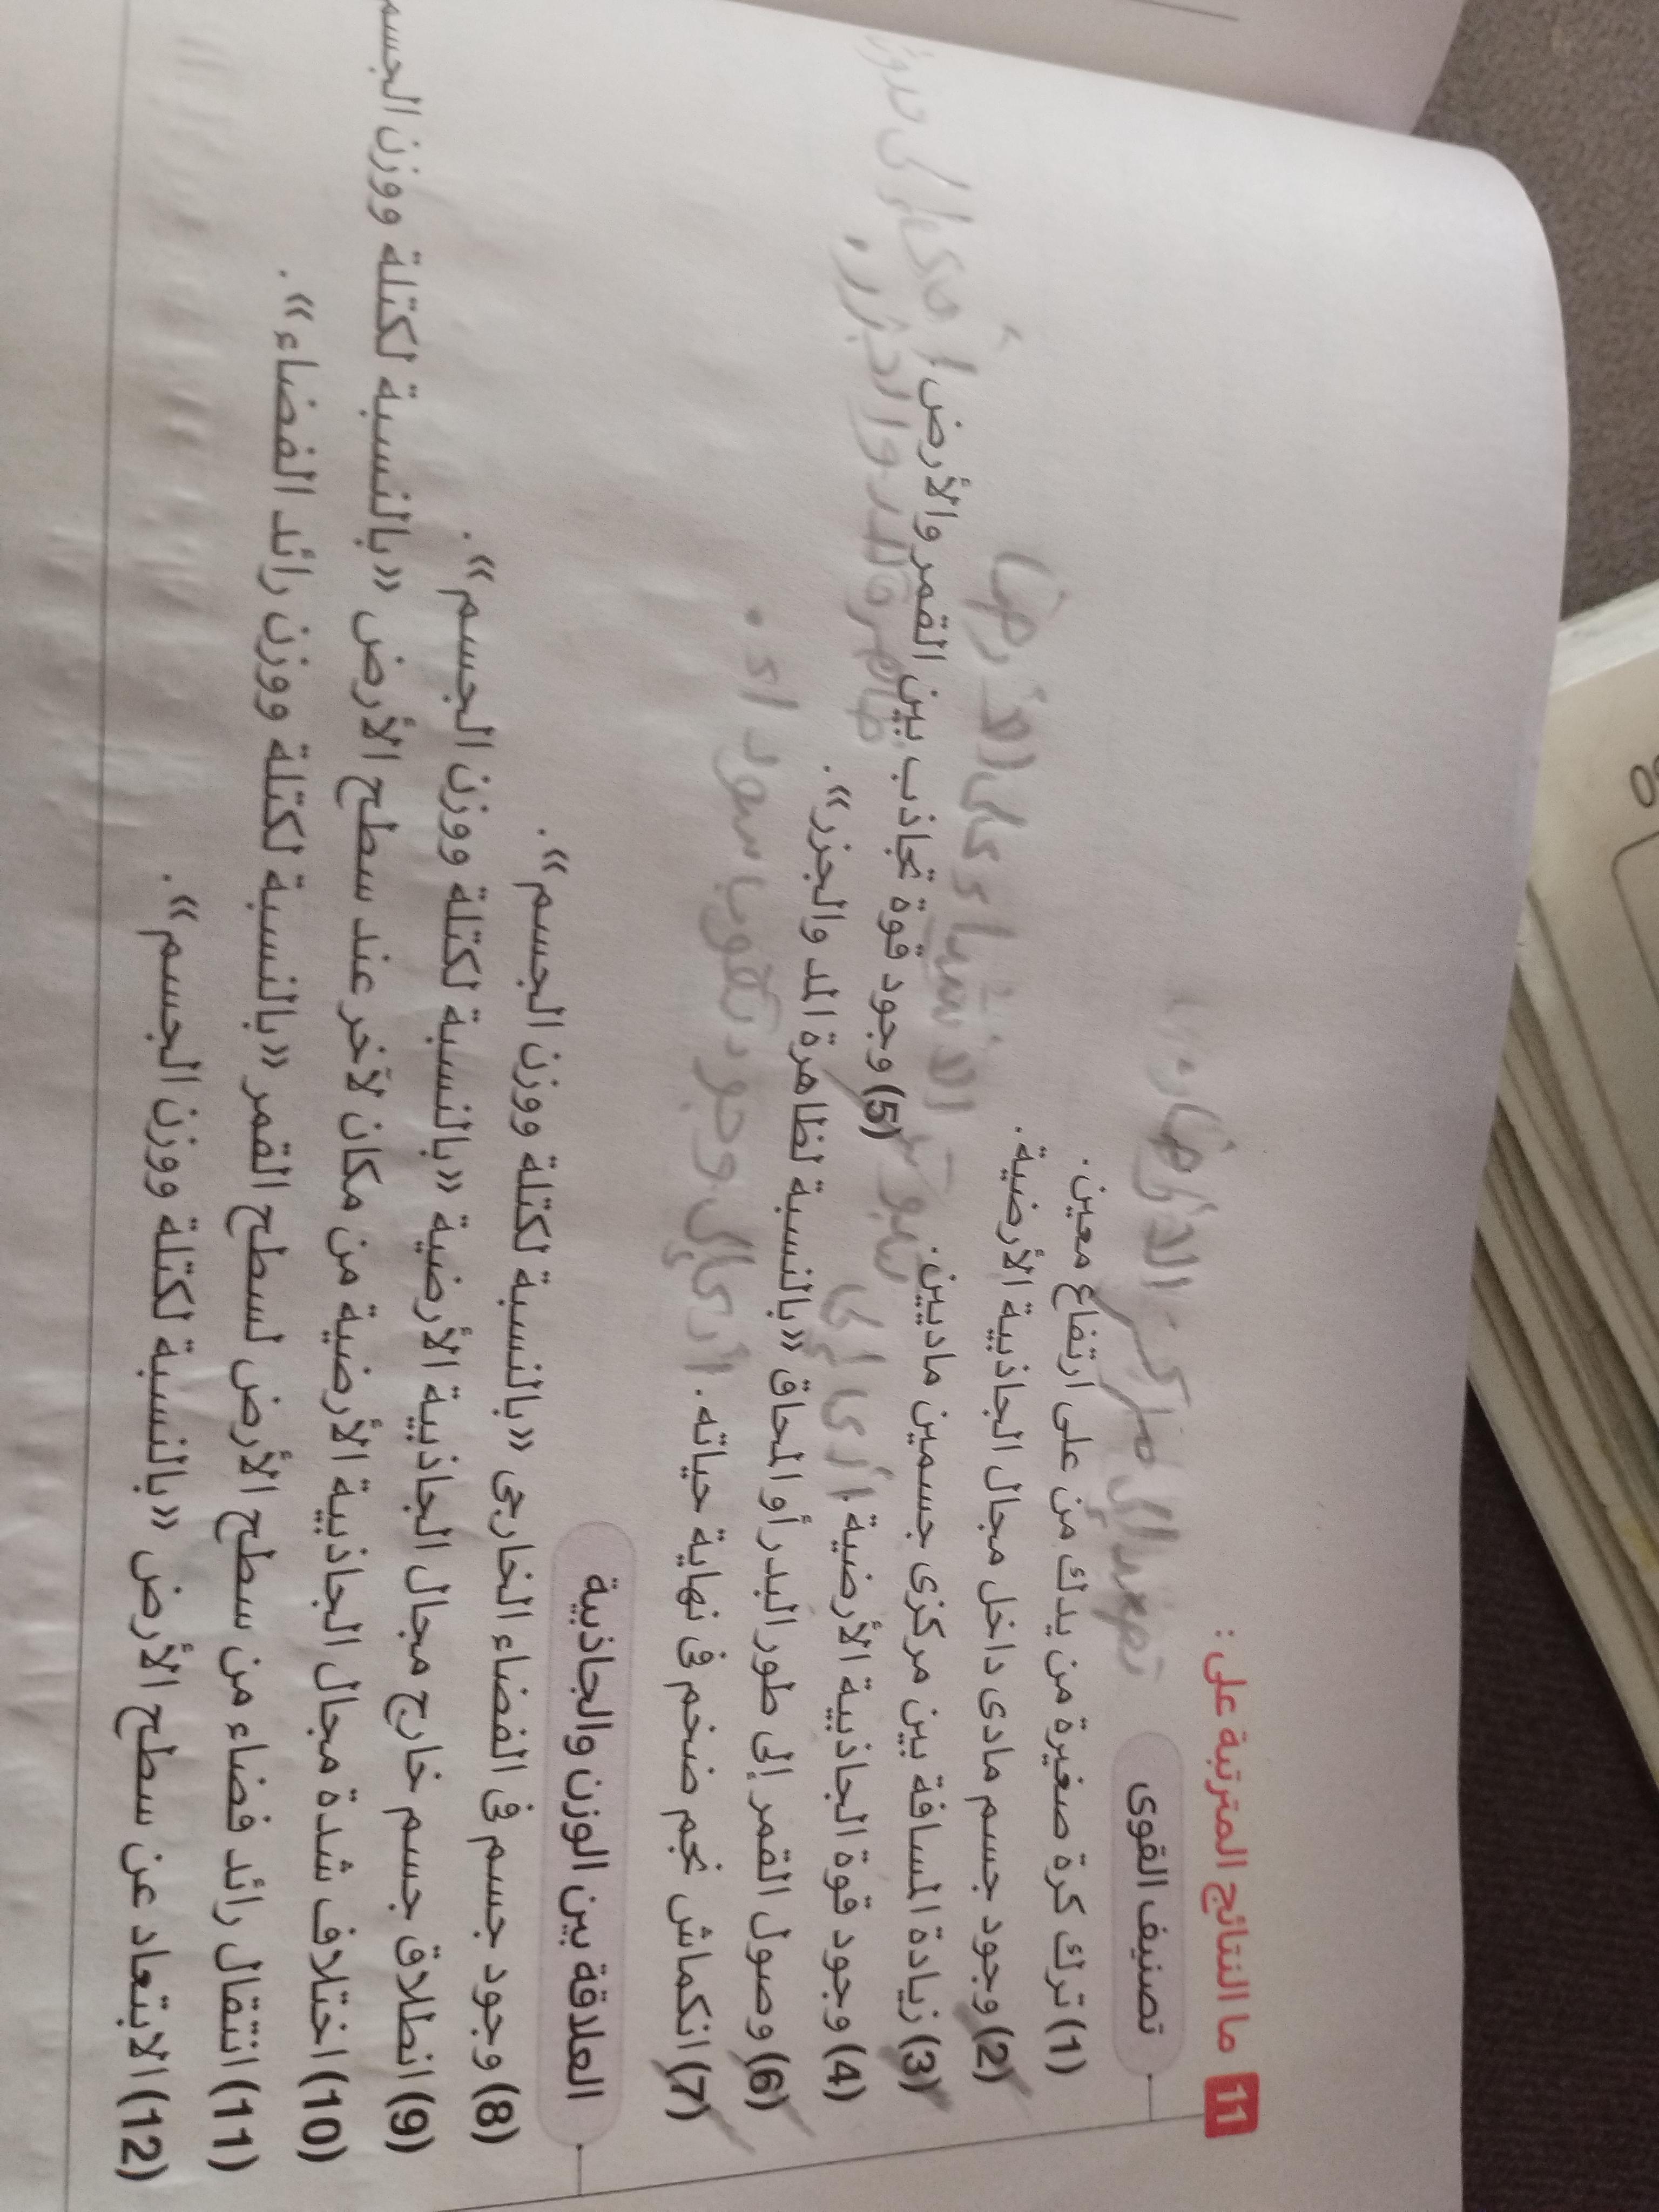 11 ما النتائج المترتبة على :
تصنيف القوى
(1) ترك كرة صغيرة من يدك من على ارتفاع معين.
(2) وجود جسم مادى داخل مجال الجاذبية الأرضية.
(3) زيادة المسافة بين مركزى جسمين ماديين.
الأشياء على الأرض
(4) وجود قوة الجاذبية الأرضية. أدى إلى
(5) وجود قوة تجاذب بين القمر والأرض
ظاهرة المد والجزر.
(6) وصول القمر إلى طور البدر أو المحاق «بالنسبة لظاهرة المد والجزر».
(7) انكماش نجم ضخم فى نهاية حياته. أدى إلى وجود ثقوب سوداء.
العلاقة بين الوزن والجاذبية
(8) وجود جسم فى الفضاء الخارجى «بالنسبة لكتلة ووزن الجسم».
(9) انطلاق جسم خارج مجال الجاذبية الأرضية «بالنسبة لكتلة ووزن الجسم».
(10) اختلاف شدة مجال الجاذبية الأرضية من مكان لآخر عند سطح الأرض «بالنسبة لكتلة ووزن الجسم
(11) انتقال رائد فضاء من سطح الأرض لسطح القمر «بالنسبة لكتلة ووزن رائد الفضاء».
(12) الابتعاد عن سطح الأرض «بالنسبة لكتلة ووزن الجسم».